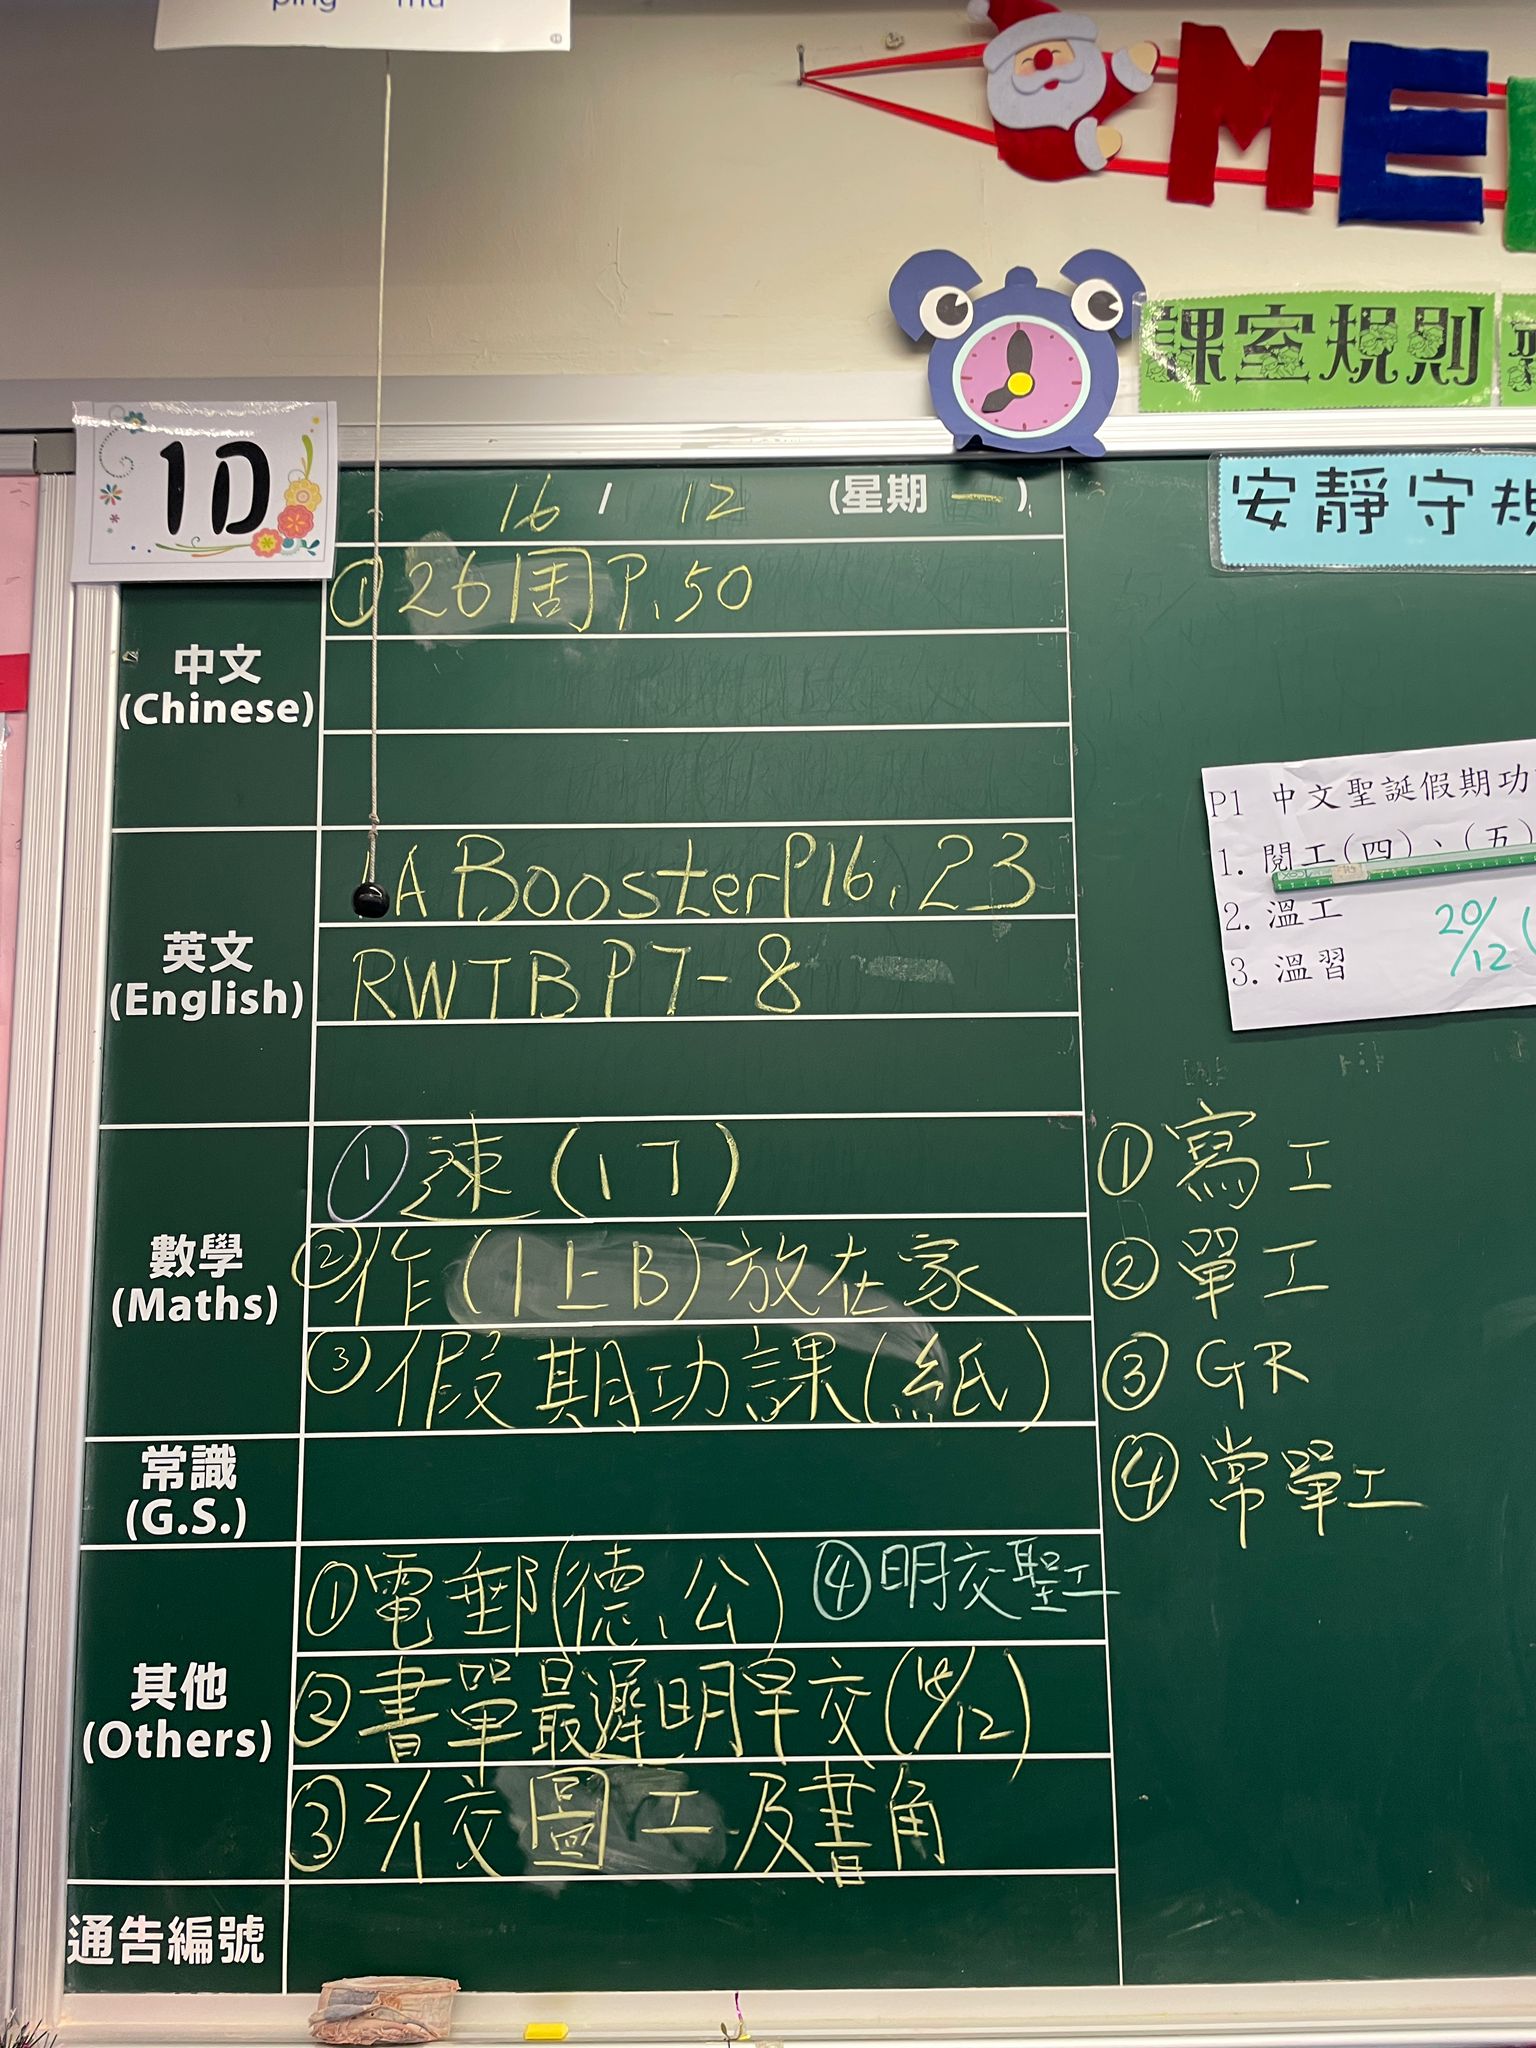 ping mu
ME
課室規則
1D
安靜守規
16 / 12 (星期一)
中文
(Chinese)
①26周P.50
英文
(English)
1A Booster P16, 23
RWTB P7-8
數學
(Maths)
①速(17)
②作(1上B)放在家
③假期功課(紙)
常識
(G.S.)
其他
(Others)
①電郵(德、公) ④明交聖工
②書單最遲明早交( /12)
③2/1交圖工及書角
通告編號
P1 中文聖誕假期功
1. 閱工(四)、(五)
2. 溫工
3. 溫習
20/12
①寫工
②單工
③GR
④常單工